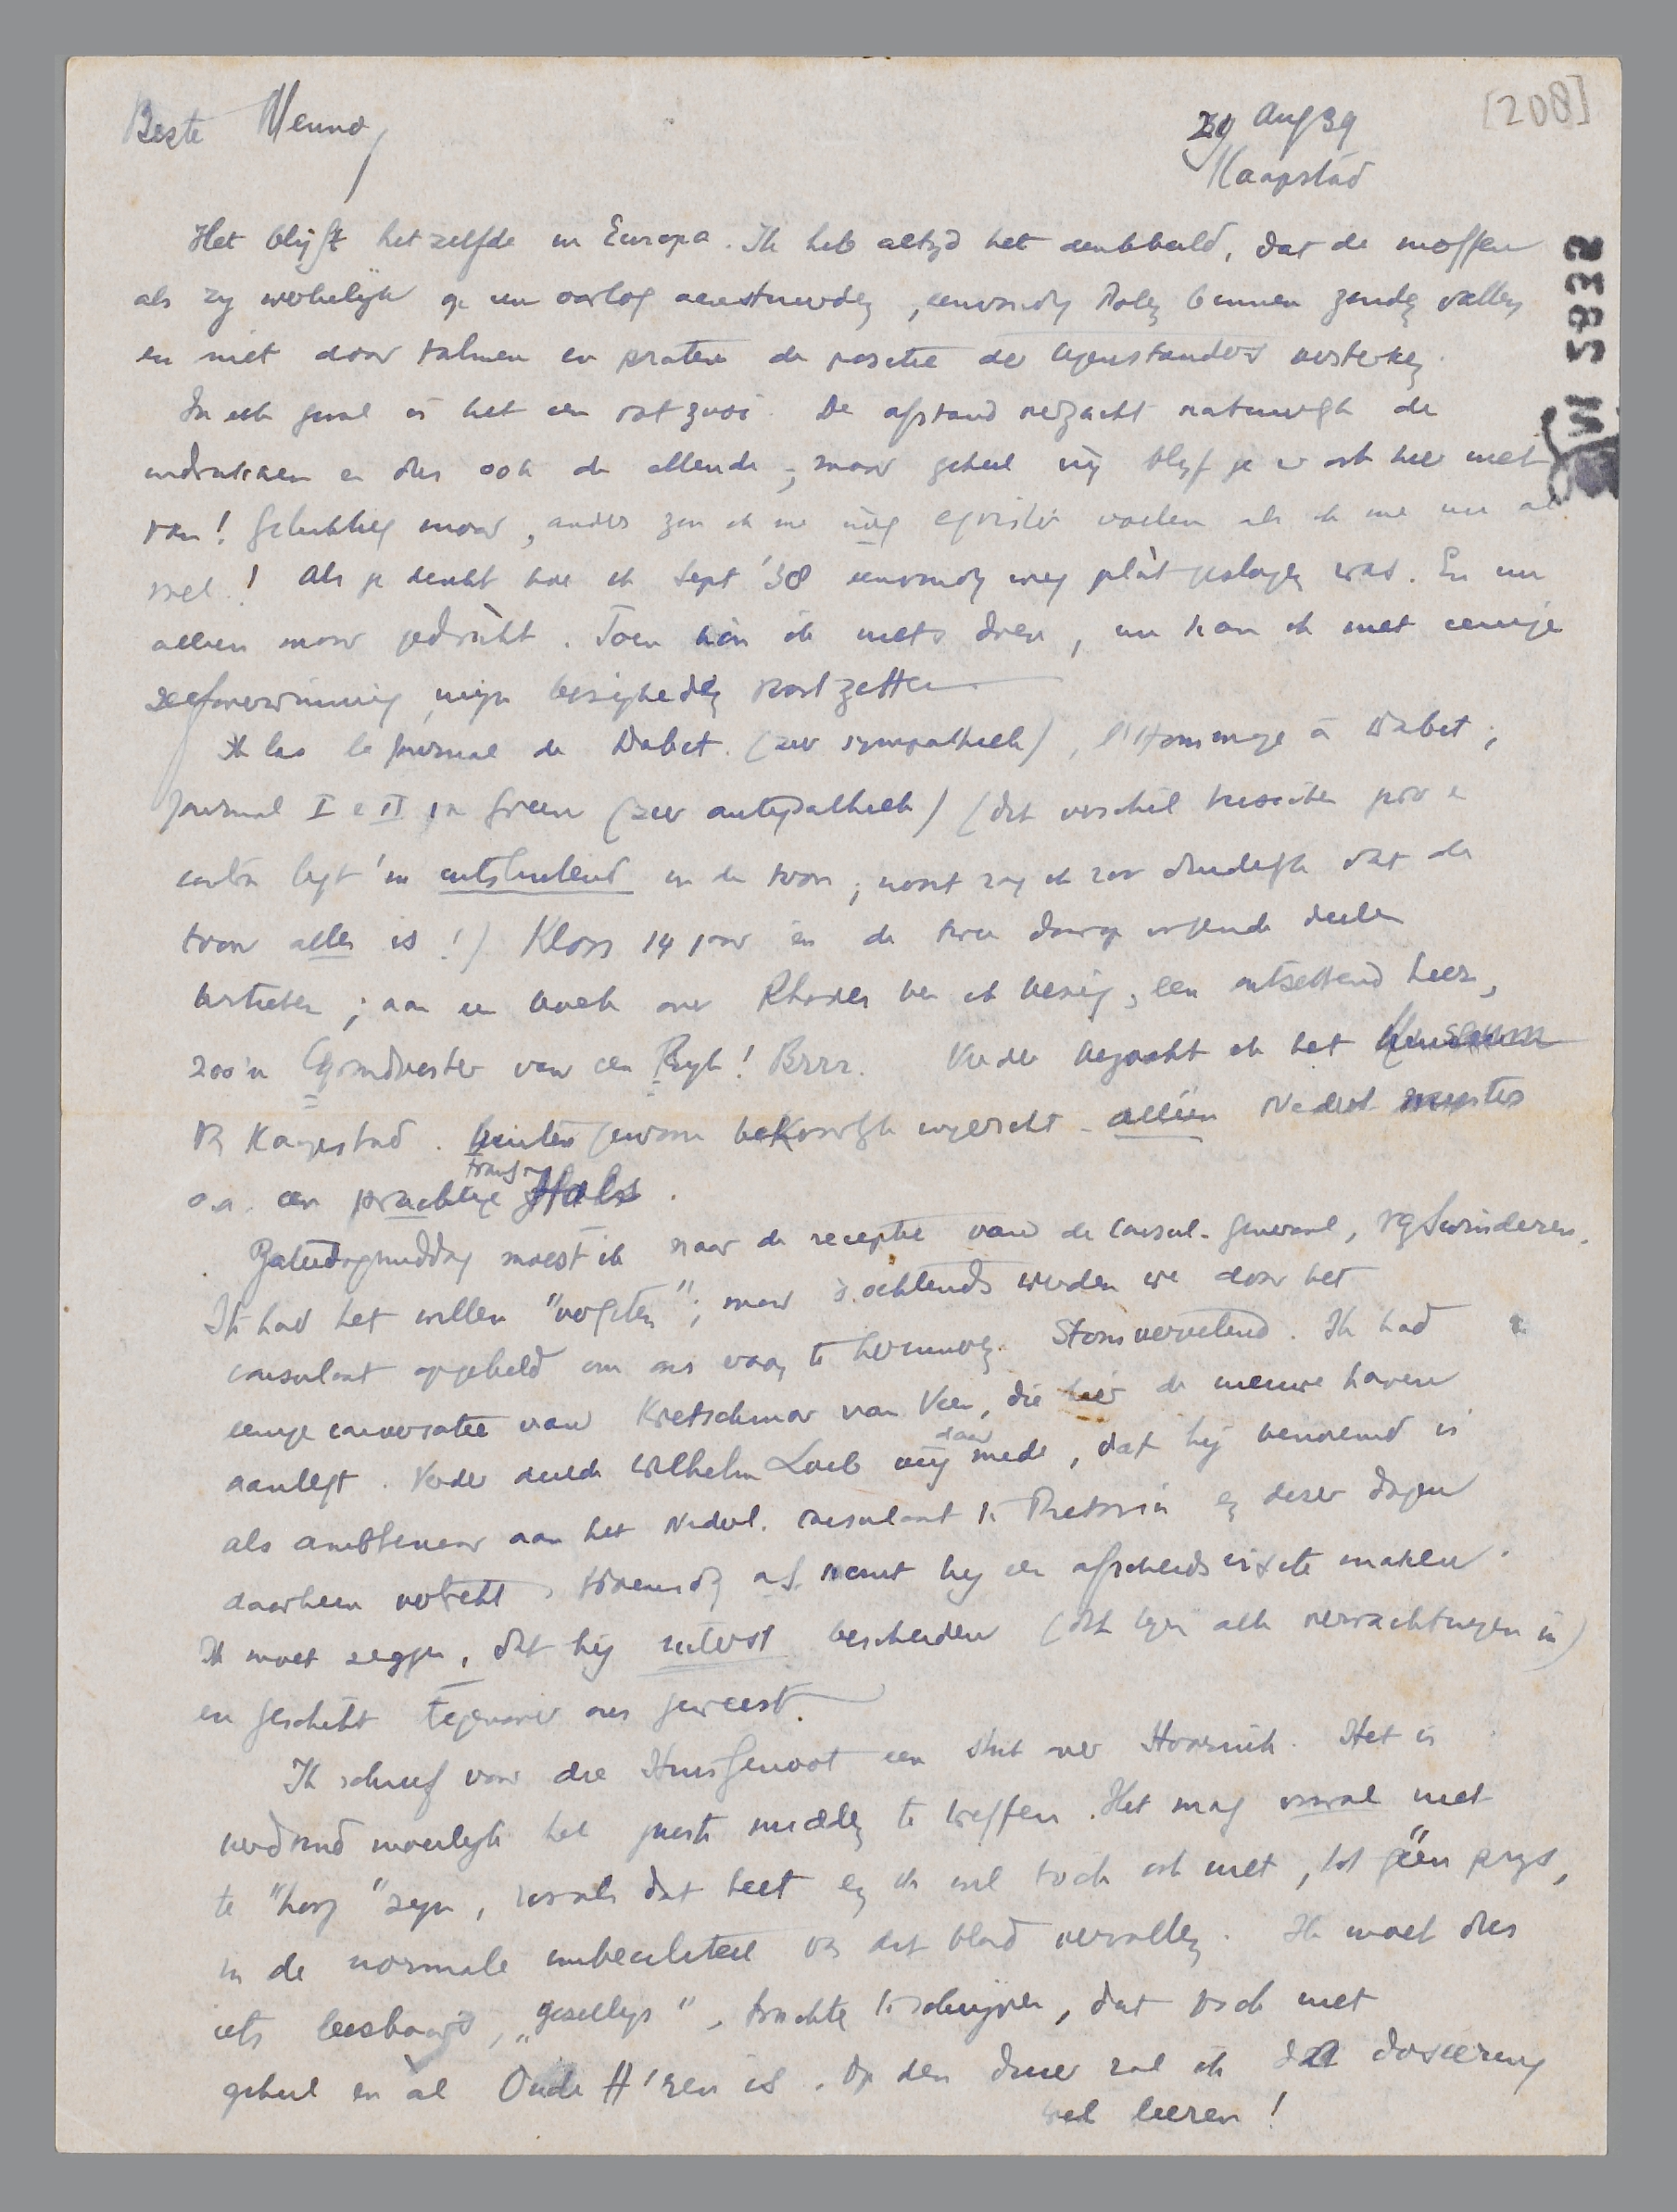 [208]
Beste Menno,
29 Aug 39
Kaapstad
Het blijft hetzelfde in Europa. Ik heb altijd het denkbeeld, dat de moffen
als zij werkelijk op een oorlog aanstuurden, eenvoudig Polen binnen zouden vallen
en niet door talmen en praten de positie der tegenstanders versterken.
In elk geval is het een rotzooi. De afstand verzacht natuurlijk de
indrukken en dus ook de ellende; maar geheel vrij blijf je er ook hier niet
van! Gelukkig maar, anders zou ik me nòg egoïster voelen als ik me nu al
voel! Als je denkt hoe ik Sept '38 eenvoudig weg plàt geslagen was. En nu
alleen maar gedrukt. Toen kòn ik niets doen, nu kan ik met eenige
zelfoverwinning mijn bezigheden voortzetten.
Ik las le Journal de Dabit (zeer sympathiek), l'Hommage à Dabit;
Journal I e II van Green (zeer antipathiek) (dit verschil tusschen pro e
contra ligt 'm uitsluitend in de toon; nooit zag ik zoo duidelijk dat de
toon alles is!) Kloos 14 jaar en de twee daarop volgende deelen
; aan een boek over Rhodes ben ik bezig, een ontzettend heer,
zoo'n Grondvester van een Rijk! Brrr. Verder bezocht ik het Museum
v Kaapstad. Buitengewoon bekoorlijk ingericht - alléén Nederl. meesters
o.a. een prachtige Frans Hals.
Zaterdagmiddag moest ik naar de receptie van de consul-generaal, v Swinderen.
Ik had het willen "vergeten"; maar 's ochtends werden we door het
consulaat opgebeld om ons eraan te herinneren. Stomvervelend. Ik had
eenige conversatie van Kretschmar van Veen, die hier de nieuwe haven
aanlegt. Verder deelde Wilhelm Loeb mij daar mede, dat hij benoemd is
als ambtenaar aan het Nederl. consulaat te Pretoria en dezer dagen
daarheen vertrekt. Woensdag a.s. komt hij een afscheidsvisite maken.
Ik moet zeggen, dat hij uiterst bescheiden (dit tegen alle verwachtingen in)
en geschikt tegenover ons geweest.
Ik schreef voor die Huisgenoot een stuk over Hoornik. Het is
verdomd moeilijk het juiste midden te treffen. Het mag vooral niet
te "hoog" zijn, zooals dat heet en ik wil toch ook niet, tot géén prijs,
in de normale imbeciliteit van dit blad vervallen. Ik moet dus
iets leesbaars, "gezelligs", trachten te schrijven, dat toch niet
geheel en àl Oude H'ren is. Op den duur zal ik dat doseering
wel leeren!